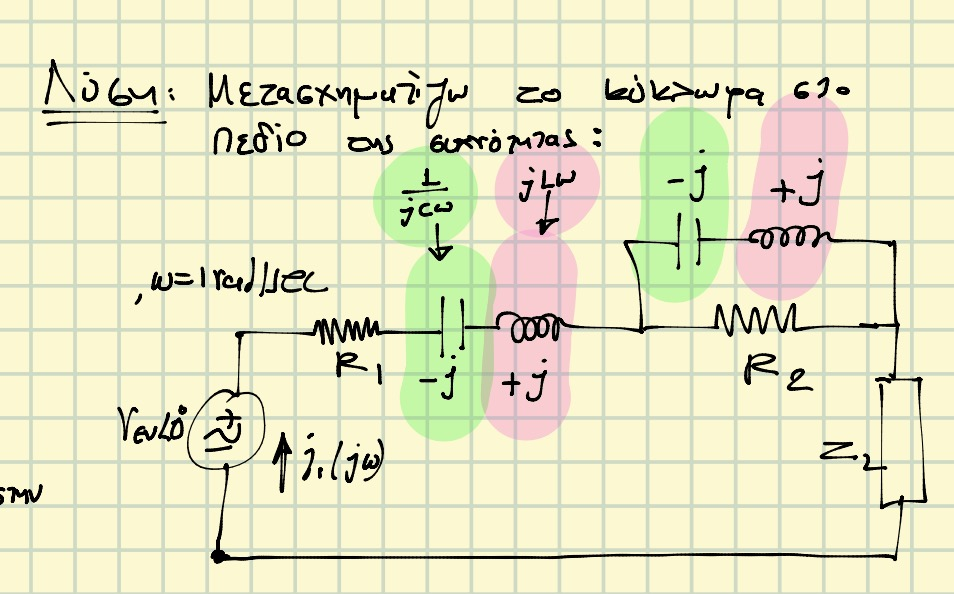 Λύση: Μετασχηματίζω το κύκλωμα στο
πεδίο της συχνότητας:
1/jCω
jLω
-j
+j
, ω=1rad/sec
R1
-j
+j
R2
Vεν∠0°
j1(jω)
ZL